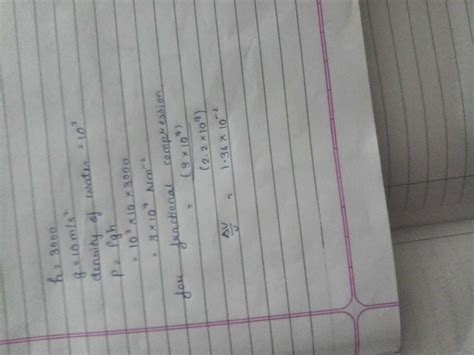 h = 3000
g = 10 m/s²
density of water = 10³
P = ρgh
= 10³ × 10 × 3000
= 3 × 10⁷ Nm⁻²
for fractional compression
= (3 × 10⁷)
(2.2 × 10⁹)
ΔV/V = 1.36 × 10⁻²